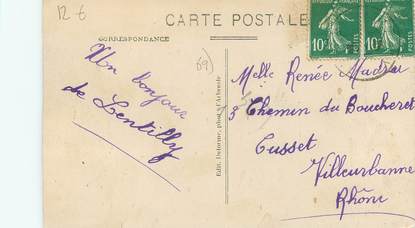 12 €
CARTE POSTALE
CORRESPONDANCE
69)
Un bonjour
de Lentilly
Edit. Deforme, phot. à l'Arbresle
Melle Renée
3 Chemin du Boucheret
Cusset
Villeurbanne
Rhône
10c
10c
POSTES
POSTES